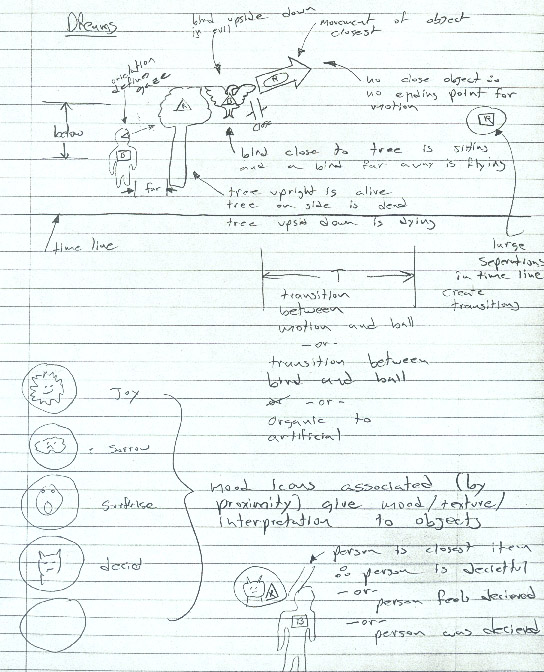 Dreams
bird upside down
is evil
movement of object
closest
orientation
defines
gaze
no close object ∴
no ending point for
motion
below
close
R
B
bird close to tree is sitting
and a bird far away is flying
far
tree upright is alive
tree on side is dead
tree upside down is dying
time line
large
seperations
in time line
create
transitions
T
transition
between
motion and ball
-or-
transition between
bird and ball
-or-
organic to
artificial
Joy
sorrow
surprise
deciet
mood icons associated (by
proximity) give mood/texture/
interpretation to objects
person is closest item
∴ person is decietful
-or-
person feels decieved
-or-
person was decieved
B